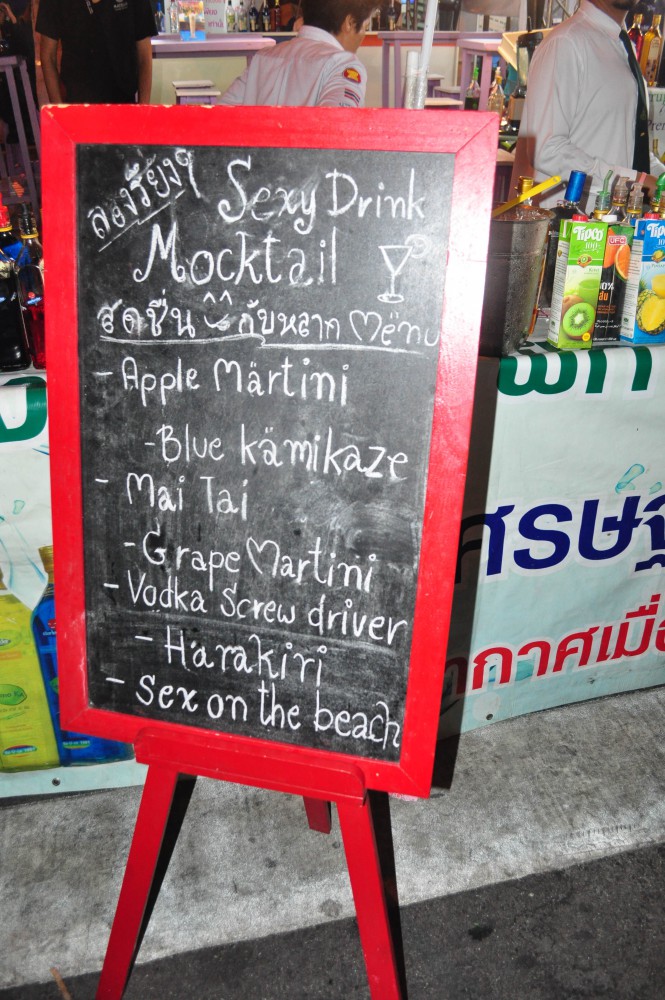 ลองรึยังๆ Sexy Drink
Mocktail
สดชื่น กับหลาก Menu
- Apple Martini
- Blue kamikaze
- Mai Tai
- Grape Martini
- Vodka Screw driver
- Harakiri
- Sex on the beach
Tipco
100%
UFC
Tipco
100%
ศรษฐ
กาศเมื่อ